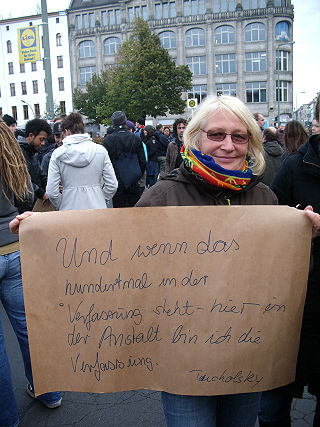 Und wenn das
hundertmal in der
Verfassung steht - hier in
der Anstalt bin ich die
Verfassung.
Tucholsky